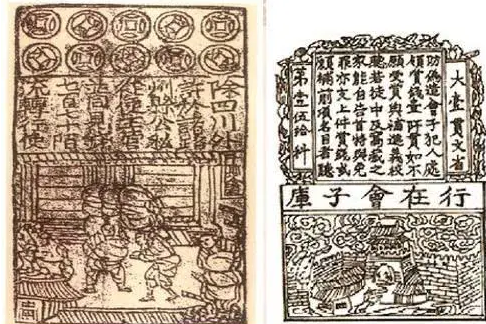 除四川外
許於諸路
州縣公私
從便主管
並同見錢
七百七十陌
流轉行使
大壹貫文省
敕偽造會子犯人處
斬賞錢壹阡貫如不
願受賞與補進義校
尉若徒中及窩藏之
家能自告首特與免
罪亦支上件賞錢或
願補前項名目者聽
第壹伍拾料
行在會子庫